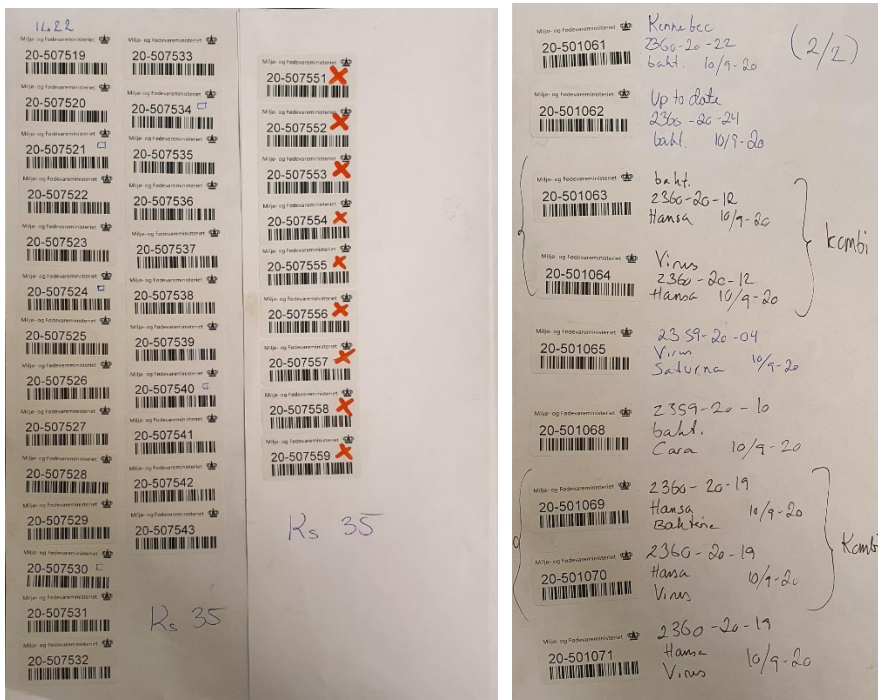 14.22
Miljø- og Fødevareministeriet
20-507519
Miljø- og Fødevareministeriet
20-507520
Miljø- og Fødevareministeriet
20-507521
Miljø- og Fødevareministeriet
20-507522
Miljø- og Fødevareministeriet
20-507523
Miljø- og Fødevareministeriet
20-507524
Miljø- og Fødevareministeriet
20-507525
Miljø- og Fødevareministeriet
20-507526
Miljø- og Fødevareministeriet
20-507527
Miljø- og Fødevareministeriet
20-507528
Miljø- og Fødevareministeriet
20-507529
Miljø- og Fødevareministeriet
20-507530
Miljø- og Fødevareministeriet
20-507531
Miljø- og Fødevareministeriet
20-507532
Miljø- og Fødevareministeriet
20-507533
Miljø- og Fødevareministeriet
20-507534
Miljø- og Fødevareministeriet
20-507535
Miljø- og Fødevareministeriet
20-507536
Miljø- og Fødevareministeriet
20-507537
Miljø- og Fødevareministeriet
20-507538
Miljø- og Fødevareministeriet
20-507539
Miljø- og Fødevareministeriet
20-507540
Miljø- og Fødevareministeriet
20-507541
Miljø- og Fødevareministeriet
20-507542
Miljø- og Fødevareministeriet
20-507543
Rs 35
Miljø- og Fødevareministeriet
20-507551
Miljø- og Fødevareministeriet
20-507552
Miljø- og Fødevareministeriet
20-507553
Miljø- og Fødevareministeriet
20-507554
Miljø- og Fødevareministeriet
20-507555
Miljø- og Fødevareministeriet
20-507556
Miljø- og Fødevareministeriet
20-507557
Miljø- og Fødevareministeriet
20-507558
Miljø- og Fødevareministeriet
20-507559
Rs 35
(2/2)
Miljø- og Fødevareministeriet
20-501061
Kennebec
2360-20-22
bakt. 10/9-20
Miljø- og Fødevareministeriet
20-501062
Up to date
2360-20-24
bakt. 10/9-20
Miljø- og Fødevareministeriet
20-501063
bakt.
2360-20-12
Hansa 10/9-20
Miljø- og Fødevareministeriet
20-501064
Virus
2360-20-12
Hansa 10/9-20
kombi
Miljø- og Fødevareministeriet
20-501065
2359-20-04
Virus
Saturna 10/9-20
Miljø- og Fødevareministeriet
20-501068
2359-20-10
bakt.
Cara 10/9-20
Miljø- og Fødevareministeriet
20-501069
2360-20-19
Hansa 10/9-20
Bakterie
Miljø- og Fødevareministeriet
20-501070
2360-20-19
Hansa 10/9-20
Virus
Kombi
Miljø- og Fødevareministeriet
20-501071
2360-20-19
Hansa
Virus 10/9-20